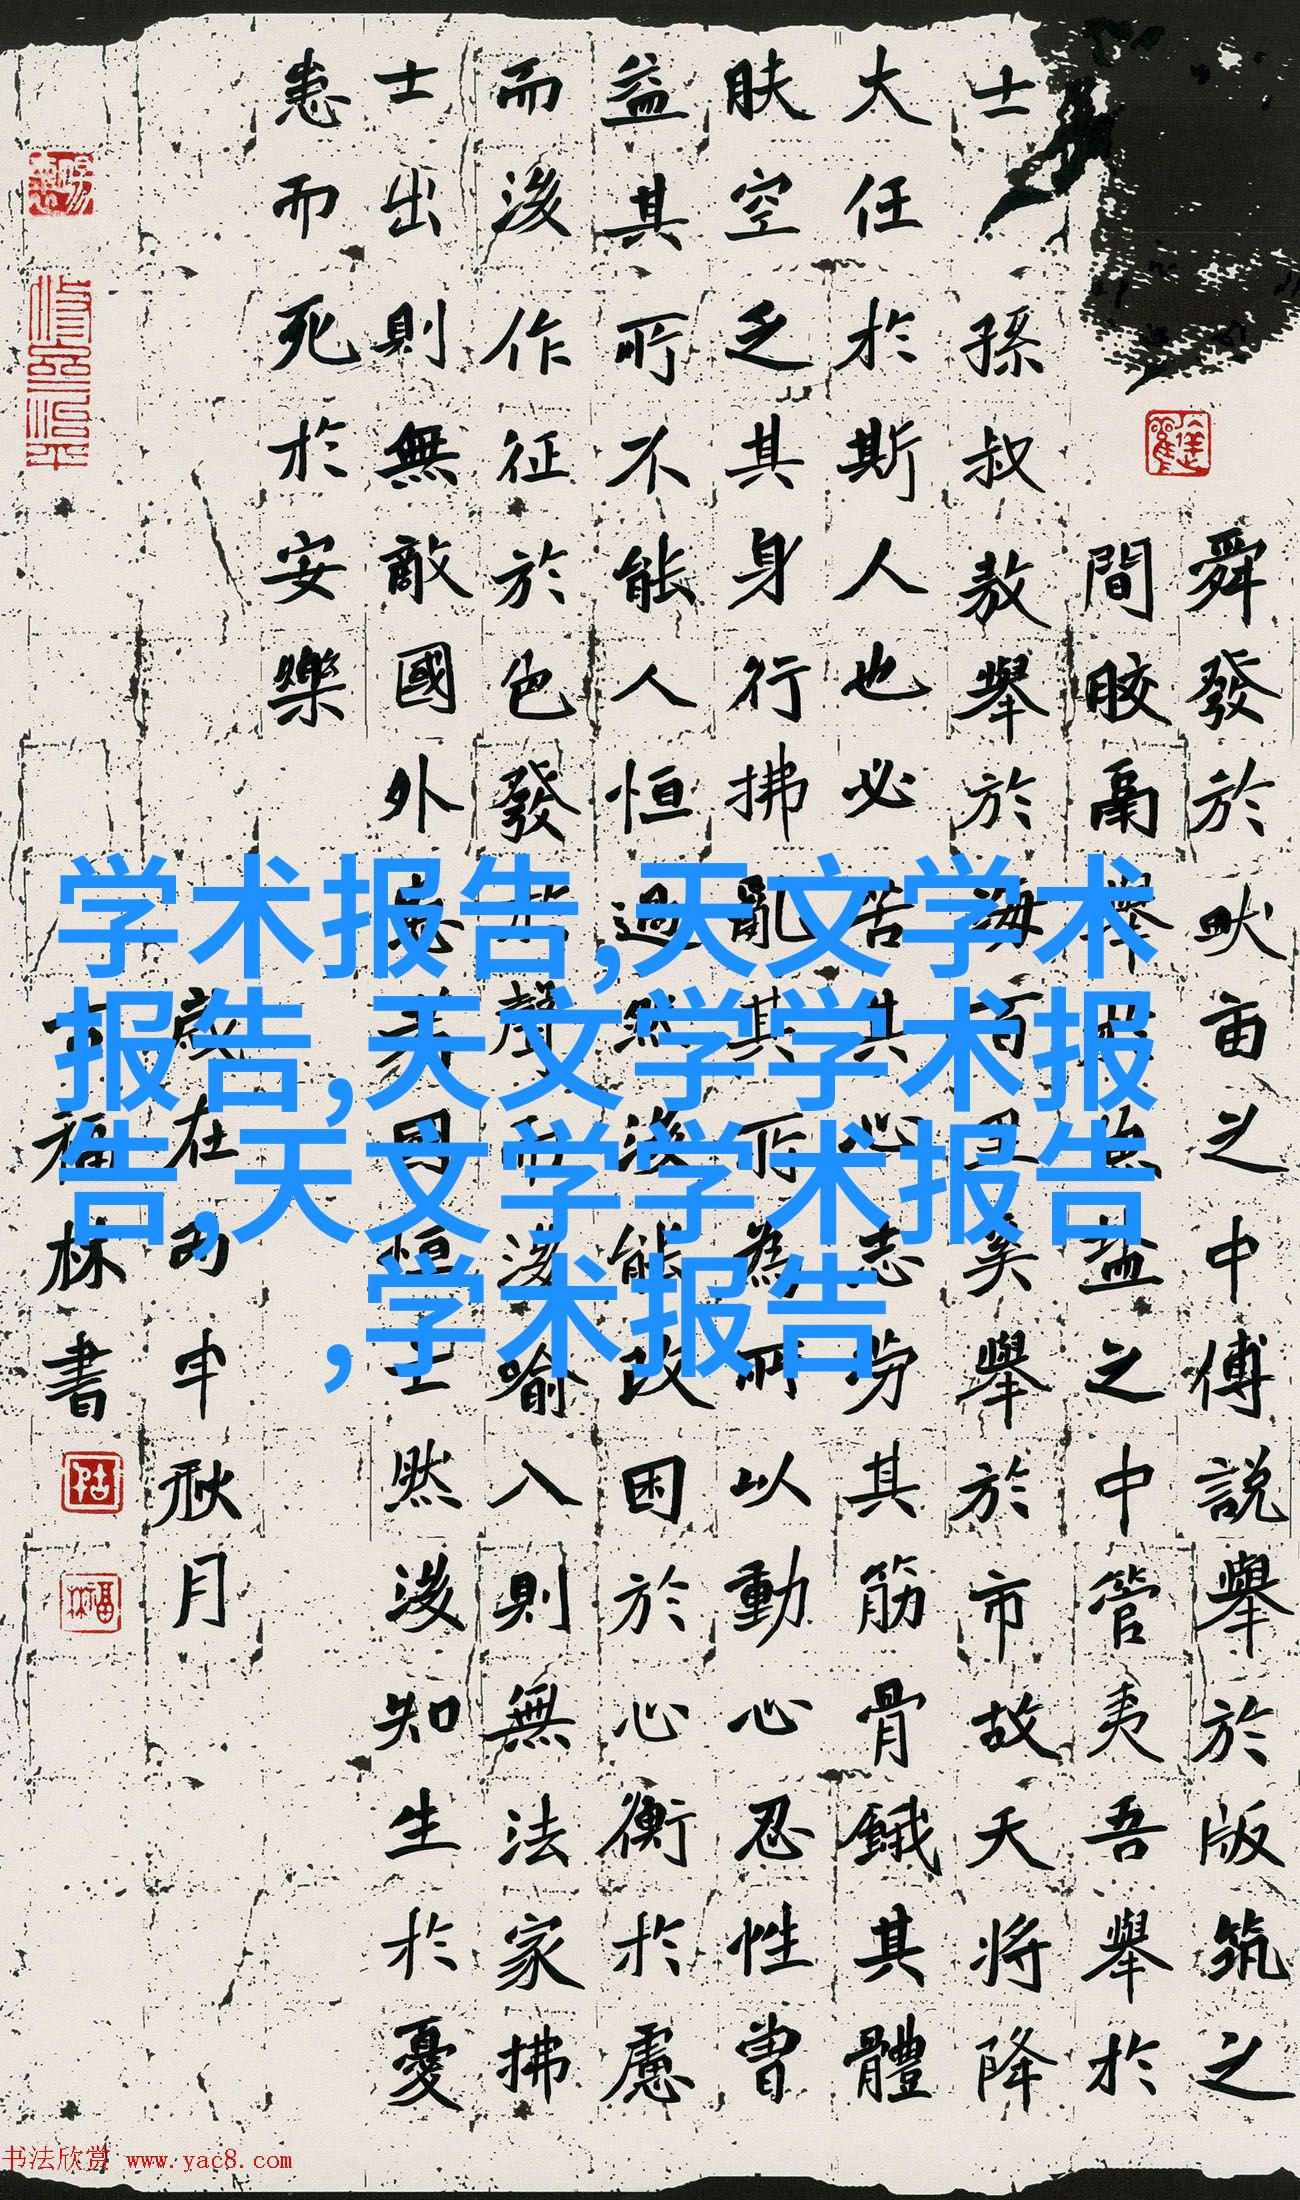 舜發於畎亩之中傅說舉於版筑之
間膠鬲舉於魚盐之中管夷吾舉於
士孫叔敖舉於海百里奚舉於市故天將降
大任於斯人也必苦其心志劳其筋骨餓其體
肤空乏其身行拂亂其所為所以動心忍性曾
益其所不能人恒過然後能改困於心衡於慮
而後作征於色發於聲而後喻入則無法家拂
士出則無敵國外患者國恒亡然後知生於憂
患而死於安樂
歲在丙申秋月
福林書
学术报告,天文学术
报告,天文学学术报
告,天文学学术报告
,学术报告
书法欣赏 www.yac8.com